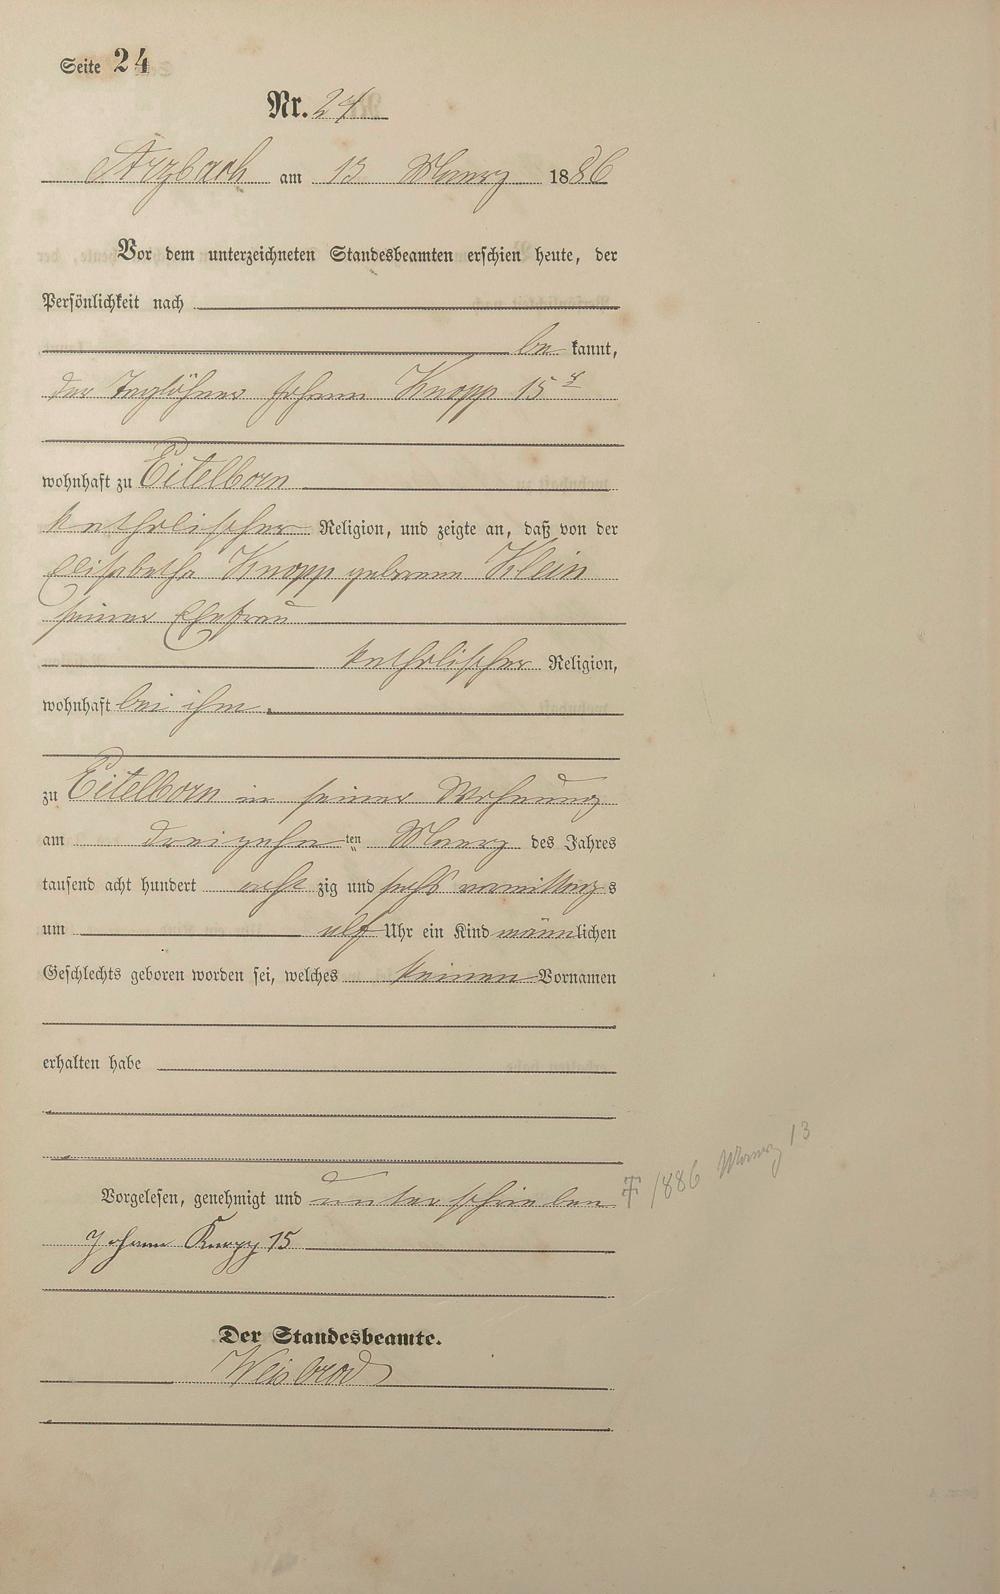 Seite 24
Nr. 24
Arzbach am 13 Maerz 1886
Vor dem unterzeichneten Standesbeamten erschien heute, der
Persönlichkeit nach
be kannt,
der Taglöhner Johann Knopp 15r
wohnhaft zu Eitelborn
katholischer Religion, und zeigte an, daß von der
Elisabetha Knopp geborene Klein
seiner Ehefrau
katholischer Religion,
wohnhaft bei ihm
zu Eitelborn in seiner Wohnung
am dreizehn ten Maerz des Jahres
tausend acht hundert acht zig und sechs vormittags
um elf Uhr ein Kind männlichen
Geschlechts geboren worden sei, welches keinen Vornamen
erhalten habe
Vorgelesen, genehmigt und unterschrieben
Johann Knopp 15
Der Standesbeamte.
Weisbrod
† 1886 Maerz 13